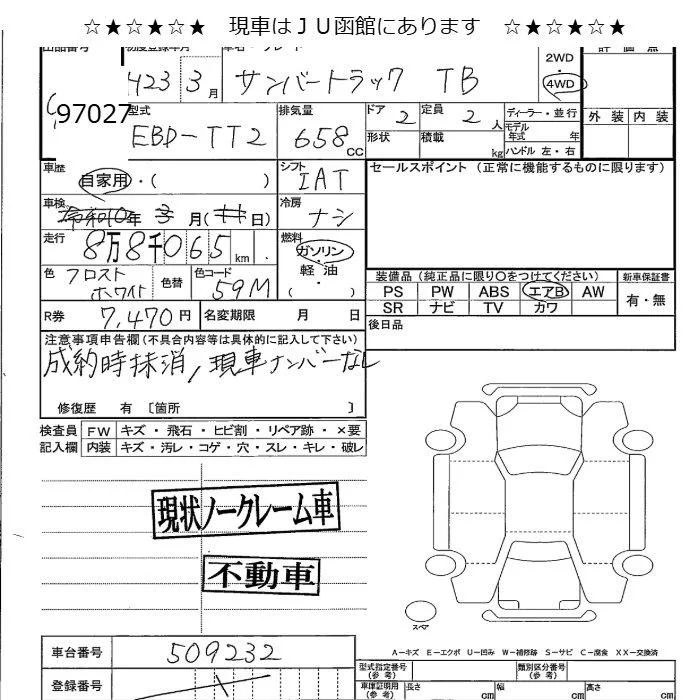 ☆★☆★☆★ 現車はＪＵ函館にあります ☆★☆★☆★
評価点
423 3月 サンバートラック TB 2WD 4WD
97027
型式 排気量 ドア 定員 ディーラー・並行 外装 内装
EBD-TT2 658 cc 2 2 人
形状 積載 kg モデル年式 年
ハンドル 左・右
車歴 シフト セールスポイント (正常に機能するものに限ります)
自家用・( ) IAT
車検 冷房
令和10年 3月( 日) ナシ
走行 燃料
8万8千065km ガソリン・軽油 ( )
色 色替 色コード
フロストホワイト 59M
装備品 (純正品に限り○をつけてください) 新車保証書
PS PW ABS エアB AW 有・無
SR ナビ TV カワ
R券 7,470円 名変期限 月 日 後日品
注意事項申告欄(不具合内容等は具体的に記入して下さい)
成約時抹消,現車ナンバーなし
修復歴 有 〔箇所 〕
検査員 FW キズ・飛石・ヒビ割・リペア跡・×要
記入欄 内装 キズ・汚レ・コゲ・穴・スレ・キレ・破レ
現状ノークレーム車
不動車
スペア
A－キズ E－エクボ U－凹み W－補修跡 S－サビ C－腐食 XX－交換済
車台番号 509232 型式指定番号(参考) 類別区分番号(参考)
登録番号 車庫証明用(参考) 長さ cm 幅 cm 高さ cm